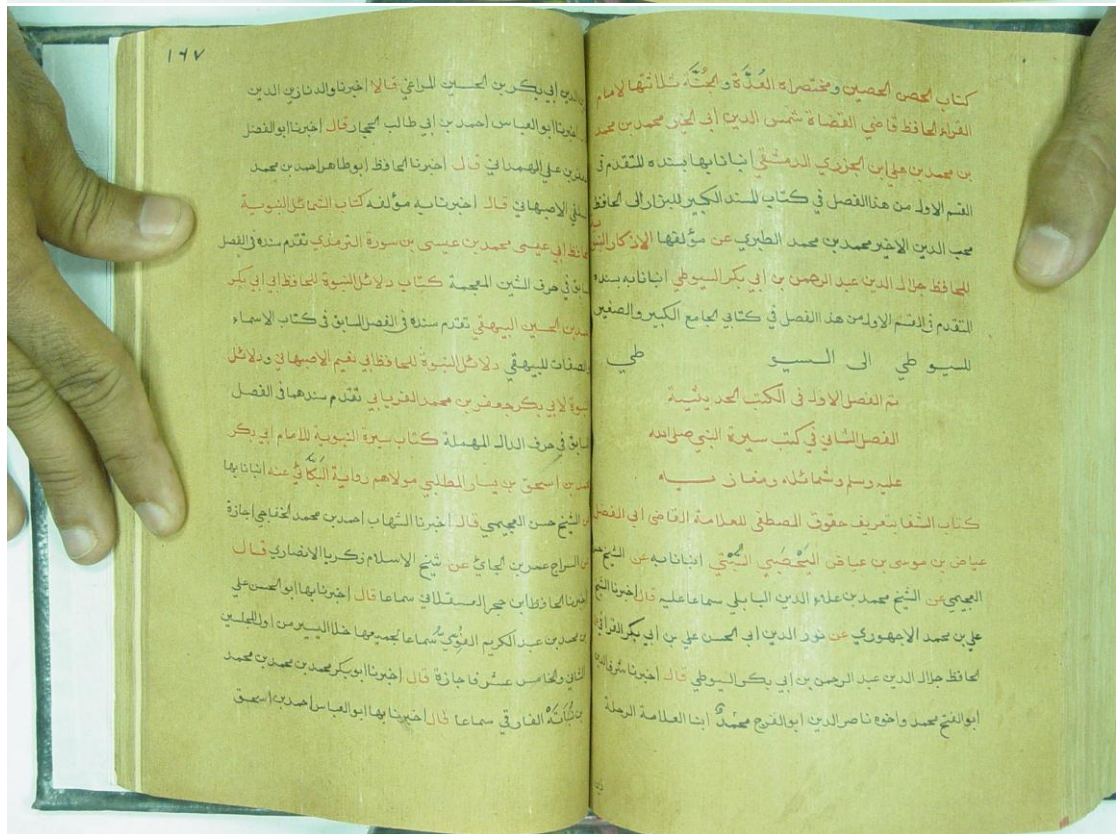 كتاب الحصن الحصين ومختصراه العُدَّة و الجُنَّة ثلاثتها لامام
القراء الحافظ قاضي القضاة شمس الدين ابي الخير محمد بن محمد
بن محمد بن علي ابن الجزري الدمشقي انبانا بها بسنده المتقدم في
القسم الاول من هذا الفصل في كتاب المسند الكبير للبزار الى الحافظ
محب الدين الاخير محمد بن محمد الطبري عن مؤلفها الاذكار
للحافظ جلال الدين عبد الرحمن بن ابي بكر السيوطي انبانا به بسنده
المتقدم في القسم الاول من هذا الفصل في كتابي الجامع الكبير والصغير
للسيو طي الى السيو طي
تم الفصل الاول في الكتب الحديثية
الفصل الثاني في كتب سيرة النبي صلى الله
عليه وسلم وشمائله ومغازيه
كتاب الشفا بتعريف حقوق المصطفى للعلامة القاضي ابي الفضل
عياض بن موسى بن عياض اليَحْصَبي السَّبْتي انبانا به عن الشيخ حسن
العجيمي عن الشيخ محمد بن علاء الدين البابلي سماعا عليه قال اخبرنا الشيخ
علي بن محمد الاجهوري عن نور الدين ابي الحسن علي بن ابي بكر القرافي
الحافظ جلال الدين عبد الرحمن بن ابي بكر السيوطي قال اخبرنا شرف الدين
ابو الفتح محمد واخوه ناصر الدين ابو الفرج محمَّد ابنا العلامة الرحلة
١٦٧
الدين ابي بكر بن الحسين المراغي قالا اخبرنا والدنا زين الدين
اخبرنا ابو العباس احمد بن ابي طالب الحجار قال اخبرنا ابو الفضل
بن علي الهمداني قال اخبرنا الحافظ ابو طاهر احمد بن محمد
السلفي الاصبهاني قال اخبرنا به مؤلفه كتاب الشمائل النبوية
للحافظ ابي عيسى محمد بن عيسى بن سورة الترمذي تقدم سنده في الفصل
السابق في حرف الشين المعجمة كتاب دلائل النبوة للحافظ ابي بكر
احمد بن الحسين البيهقي تقدم سنده في الفصل السابق في كتاب الاسماء
والصفات للبيهقي دلائل النبوة للحافظ ابي نعيم الاصبهاني ودلائل
النبوة لابي بكر جعفر بن محمد الفريابي تقدم سندهما في الفصل
السابق في حرف الدال المهملة كتاب سيرة النبوية للامام ابي بكر
محمد بن اسحق بن يسار المطلبي مولاهم رواية البَكَّائي عنه انبانا بها
عن الشيخ حسن العجيمي قال اخبرنا الشهاب احمد بن محمد الخفاجي اجازة
عن السراج عمر بن الجاي عن شيخ الاسلام زكريا الانصاري قال
اخبرنا الحافظ ابن حجر العسقلاني سماعا قال اخبرنا بها ابو الحسن علي
بن محمد بن عبد الكريم الفُوِّيّ سماعا لجميعها خلا اليسير من اول المجلسين
الثاني والخامس عشر فاجازة قال اخبرنا ابو بكر محمد بن محمد بن محمد
بن نُبَاتَة الفارقي سماعا قال اخبرنا بها ابو العباس احمد بن اسحق